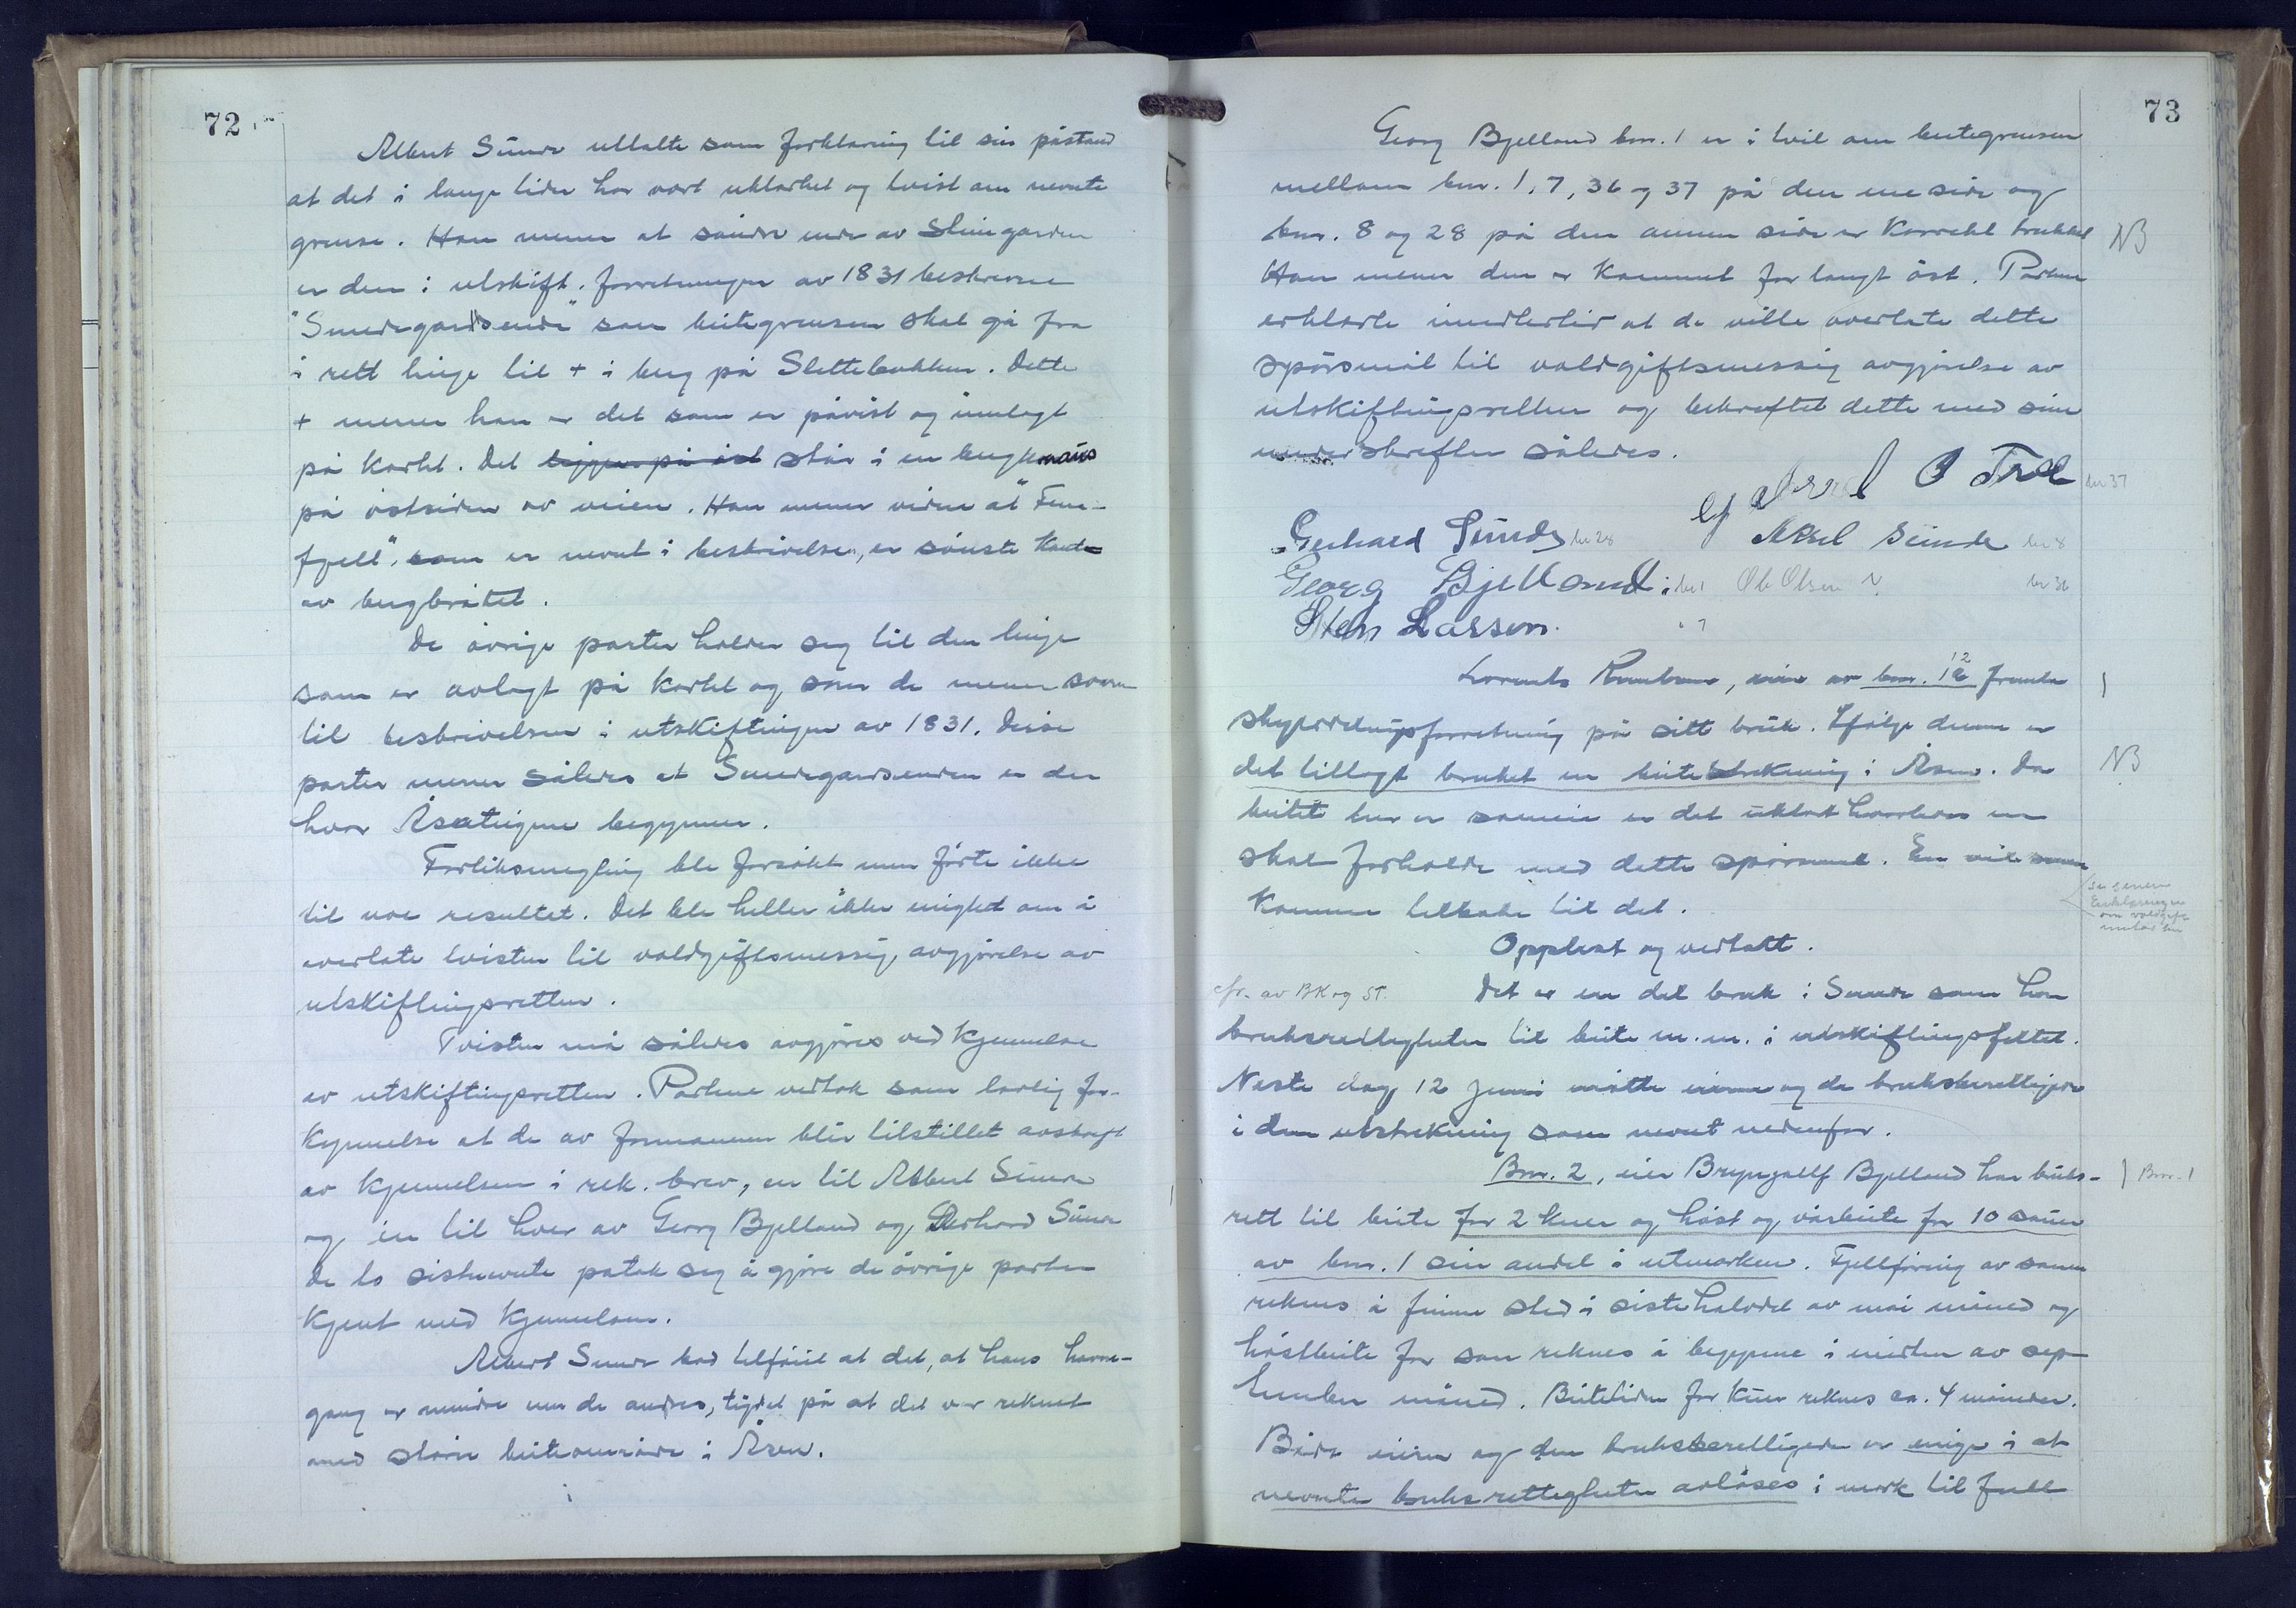 72
Albert Sunde uttalte som forklaring til sin påstand
at det i lange tider har vært uklarhet og tvist om nevnte
grense. Han mener at søndre ende av steingarden
er den i utskift. forretningen av 1831 beskrevne
"Smedegardsende" som beitegrensen skal gå fra
i rett linje til + i berg på Slettebakken. Dette
+ mener han er det som er påvist og innlagt
på kartet. Det ligger på øst står i en bergknaus
på østsiden av veien. Han mener videre at "
fjell", som er nevnt i beskrivelsen, er søndste kant
av bergbrotet.
De øvrige parter holder seg til den linje
som er avlagt på kartet og som de mener svarer
til beskrivelsen i utskiftingen av 1831. Disse
parter mener således at Smedegardsenden er der
hvor Åsateigene begynner.
Forliksmegling ble forsøkt men førte ikke
til noe resultat. Det ble heller ikke enighet om å
overlate tvisten til voldgiftsmessig avgjørelse av
utskiftingsretten.
Tvisten må således avgjøres ved kjennelse
av utskiftingsretten. Partene vedtok som lovlig for-
kynnelse at de av formannen blir tilstillet avskrift
av kjennelsen i rek. brev, en til Albert Sunde
og en til hver av Georg Bjelland og Gerhard Sunde
De to sistnevnte påtok seg å gjøre de øvrige parter
kjent med kjennelsen.
Albert Sunde bad tilføiet at det, at hans havne-
gang er mindre enn de andres, tydet på at det var reknet
med større beiteområde i Åsen.
73
Georg Bjelland bnr. 1 er i tvil om beitegrensen
mellom bnr. 1, 7, 36 og 37 på den ene side og
bnr. 8 og 28 på den annen side er korrekt trukket
NB
Han mener den er kommet for langt øst. Partene
erklærte imidlertid at de ville overlate dette
spørsmål til voldgiftsmessig avgjørelse av
utskiftingsretten og bekreftet dette med sine
underskrifter således.
Gabriel O Træe bnr 37
Gerhard Sunde bnr 28 Aksel Sunde bnr 8
Georg Bjelland bnr 1 Ole Olsen bnr 36
Sten Larsen. " 7
Lorents , eier av bnr. 12 fremla
12
skylddelingsforretning på sitt bruk. Ifølge denne er
det tillagt bruket en beitestrekning i Åsen. Da
NB
beitet her er sameie er det uklart hvorledes en
skal forholde med dette spørsmål. En vil senere
komme tilbake til det.
se senere
Erklæringen
om voldgift
Opplest og vedtatt.
cfr. av BK og ST.
Det er en del bruk i Sunde som har
bruksrettigheter til beite m.m. i utskiftingsfeltet.
Neste dag 12 juni møtte eierne og de bruksberettigede
i den utstrekning som nevnt nedenfor.
Bnr. 2, eier Bryngjell Bjelland har bruks-
Bnr. 1
rett til beite for 2 kuer og høst og vårbeite for 10 sauer
av bnr. 1 sin andel i utmarken. Fjellføring av sauen
reknes å finne sted i siste halvdel av mai måned og
høstbeite for sau reknes å begynne i midten av sep-
tember måned. Beitetiden for kuer reknes ca. 4 måneder.
Både eieren og den bruksberettigede er enige i at
nevnte bruksrettigheter avløses i mark til full